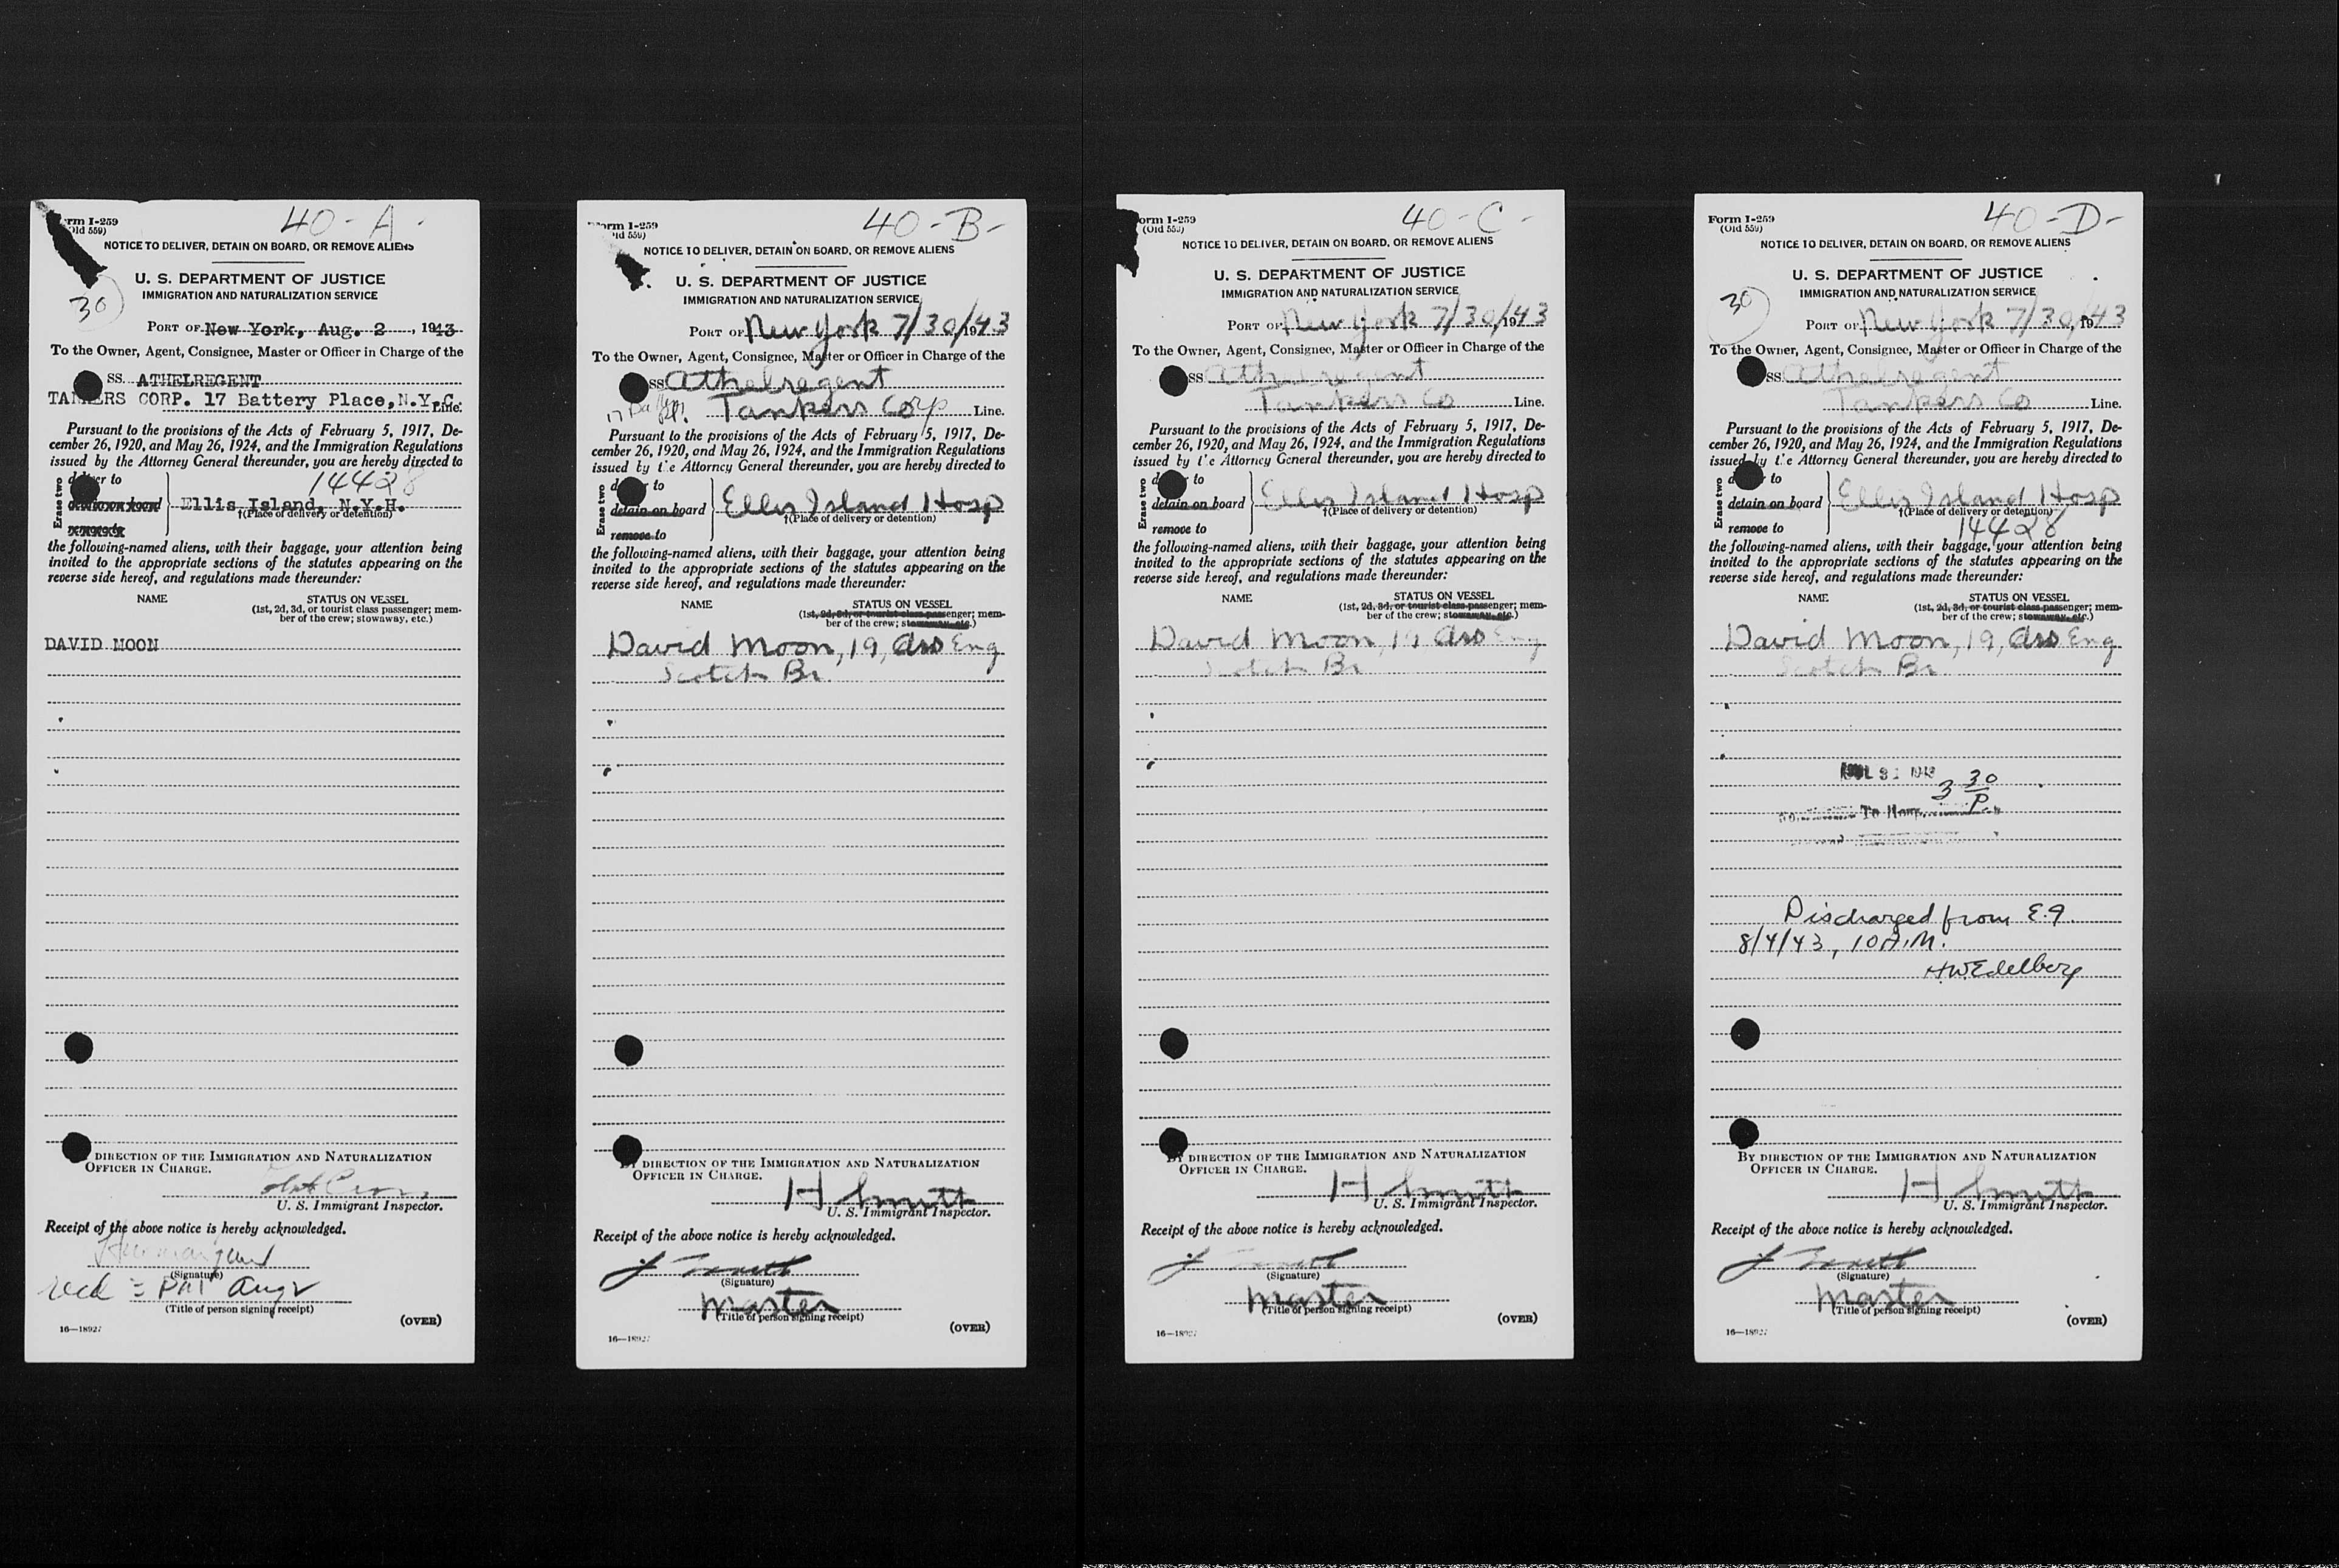 40-A-
Form I-259
(Old 559)
NOTICE TO DELIVER, DETAIN ON BOARD, OR REMOVE ALIENS
U. S. DEPARTMENT OF JUSTICE
IMMIGRATION AND NATURALIZATION SERVICE
30
PORT OF New York, Aug. 2, 1943
To the Owner, Agent, Consignee, Master or Officer in Charge of the
SS. ATHELREGENT
TANKERS CORP. 17 Battery Place, N.Y.C. Line.
Pursuant to the provisions of the Acts of February 5, 1917, De-
cember 26, 1920, and May 26, 1924, and the Immigration Regulations
issued by the Attorney General thereunder, you are hereby directed to
14428
Erase two
deliver to
Ellis Island, N.Y.H.
†(Place of delivery or detention)
the following-named aliens, with their baggage, your attention being
invited to the appropriate sections of the statutes appearing on the
reverse side hereof, and regulations made thereunder:
NAME STATUS ON VESSEL
(1st, 2d, 3d, or tourist class passenger; mem-
ber of the crew; stowaway, etc.)
DAVID MOON
DIRECTION OF THE IMMIGRATION AND NATURALIZATION
OFFICER IN CHARGE.
U. S. Immigrant Inspector.
Receipt of the above notice is hereby acknowledged.
(Signature)
recd 2 PM Aug 2
(Title of person signing receipt)
(OVER)
16—18927
40-B-
Form I-259
(Old 559)
NOTICE TO DELIVER, DETAIN ON BOARD, OR REMOVE ALIENS
U. S. DEPARTMENT OF JUSTICE
IMMIGRATION AND NATURALIZATION SERVICE
PORT OF New York 7/30/1943
To the Owner, Agent, Consignee, Master or Officer in Charge of the
SS Athelregent
17 Battery Pl. Tankers Corp Line.
Pursuant to the provisions of the Acts of February 5, 1917, De-
cember 26, 1920, and May 26, 1924, and the Immigration Regulations
issued by the Attorney General thereunder, you are hereby directed to
Erase two
d to
detain on board
remove to
Ellis Island Hosp
†(Place of delivery or detention)
the following-named aliens, with their baggage, your attention being
invited to the appropriate sections of the statutes appearing on the
reverse side hereof, and regulations made thereunder:
NAME STATUS ON VESSEL
(1st, 2d, 3d, or tourist class passenger; mem-
ber of the crew; stowaway, etc.)
David Moon, 19, Ass Eng
Scotch Br.
BY DIRECTION OF THE IMMIGRATION AND NATURALIZATION
OFFICER IN CHARGE.
H Smith
U. S. Immigrant Inspector.
Receipt of the above notice is hereby acknowledged.
(Signature)
Master
(Title of person signing receipt)
(OVER)
16—18927
40-C-
Form I-259
(Old 559)
NOTICE TO DELIVER, DETAIN ON BOARD, OR REMOVE ALIENS
U. S. DEPARTMENT OF JUSTICE
IMMIGRATION AND NATURALIZATION SERVICE
PORT OF New York 7/30/1943
To the Owner, Agent, Consignee, Master or Officer in Charge of the
SS Athelregent
Tankers Co Line.
Pursuant to the provisions of the Acts of February 5, 1917, De-
cember 26, 1920, and May 26, 1924, and the Immigration Regulations
issued by the Attorney General thereunder, you are hereby directed to
Erase two
d to
detain on board
remove to
Ellis Island Hosp
†(Place of delivery or detention)
the following-named aliens, with their baggage, your attention being
invited to the appropriate sections of the statutes appearing on the
reverse side hereof, and regulations made thereunder:
NAME STATUS ON VESSEL
(1st, 2d, 3d, or tourist class passenger; mem-
ber of the crew; stowaway, etc.)
David Moon, 19, Ass Eng
Scotch Br
BY DIRECTION OF THE IMMIGRATION AND NATURALIZATION
OFFICER IN CHARGE.
H Smith
U. S. Immigrant Inspector.
Receipt of the above notice is hereby acknowledged.
(Signature)
Master
(Title of person signing receipt)
(OVER)
16—18927
40-D-
Form I-259
(Old 559)
NOTICE TO DELIVER, DETAIN ON BOARD, OR REMOVE ALIENS
U. S. DEPARTMENT OF JUSTICE
IMMIGRATION AND NATURALIZATION SERVICE
30
PORT OF New York 7/30, 1943
To the Owner, Agent, Consignee, Master or Officer in Charge of the
SS Athelregent
Tankers Co Line.
Pursuant to the provisions of the Acts of February 5, 1917, De-
cember 26, 1920, and May 26, 1924, and the Immigration Regulations
issued by the Attorney General thereunder, you are hereby directed to
Erase two
d to
detain on board
remove to
Ellis Island Hosp
†(Place of delivery or detention)
14428
the following-named aliens, with their baggage, your attention being
invited to the appropriate sections of the statutes appearing on the
reverse side hereof, and regulations made thereunder:
NAME STATUS ON VESSEL
(1st, 2d, 3d, or tourist class passenger; mem-
ber of the crew; stowaway, etc.)
David Moon, 19, Ass Eng
Scotch Br.
JUL 31 1943
3 30 P.
To Hosp.
Discharged from E.I.
8/4/43, 10 A.M.
H.W. Edelberg
BY DIRECTION OF THE IMMIGRATION AND NATURALIZATION
OFFICER IN CHARGE.
H Smith
U. S. Immigrant Inspector.
Receipt of the above notice is hereby acknowledged.
(Signature)
Master
(Title of person signing receipt)
(OVER)
16—18927